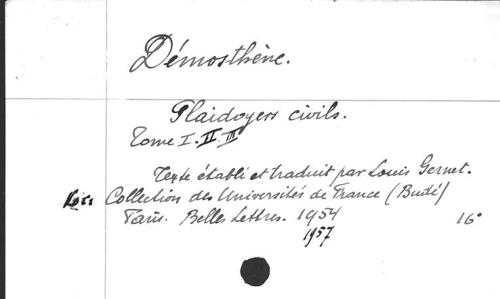 Démosthène.
Plaidoyers civils.
Tome I. II. III
Texte établi et traduit par Louis Gernet.
Collection des Universités de France (Budé)
Paris. Belles Lettres. 1954 16°
1957